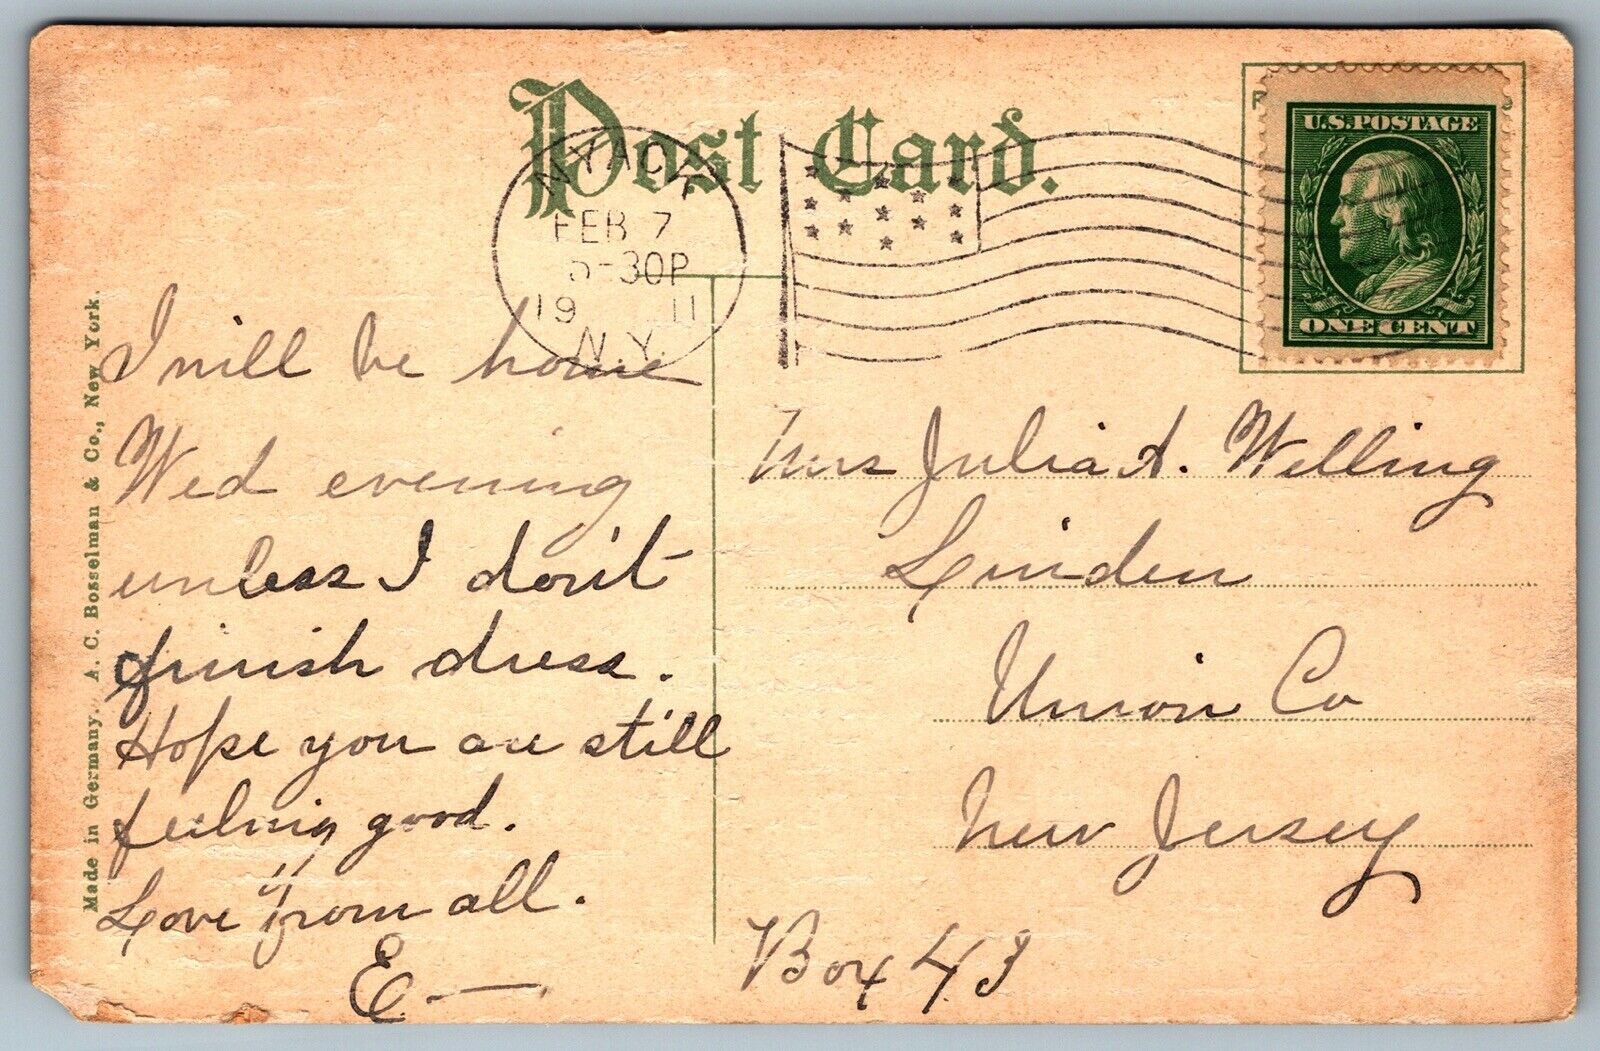 Post Card.
NYACK
FEB 7
5-30P
19 11
N.Y.
U.S. POSTAGE
ONE CENT
I will be home
Wed evening
unless I don't
finish dress.
Hope you are still
feeling good.
Love from all.
E—.
Mrs Julia A. Welling
Linden
Union Co
New Jersey
Box 43
Made in Germany. A. C. Bosselman & Co., New York.